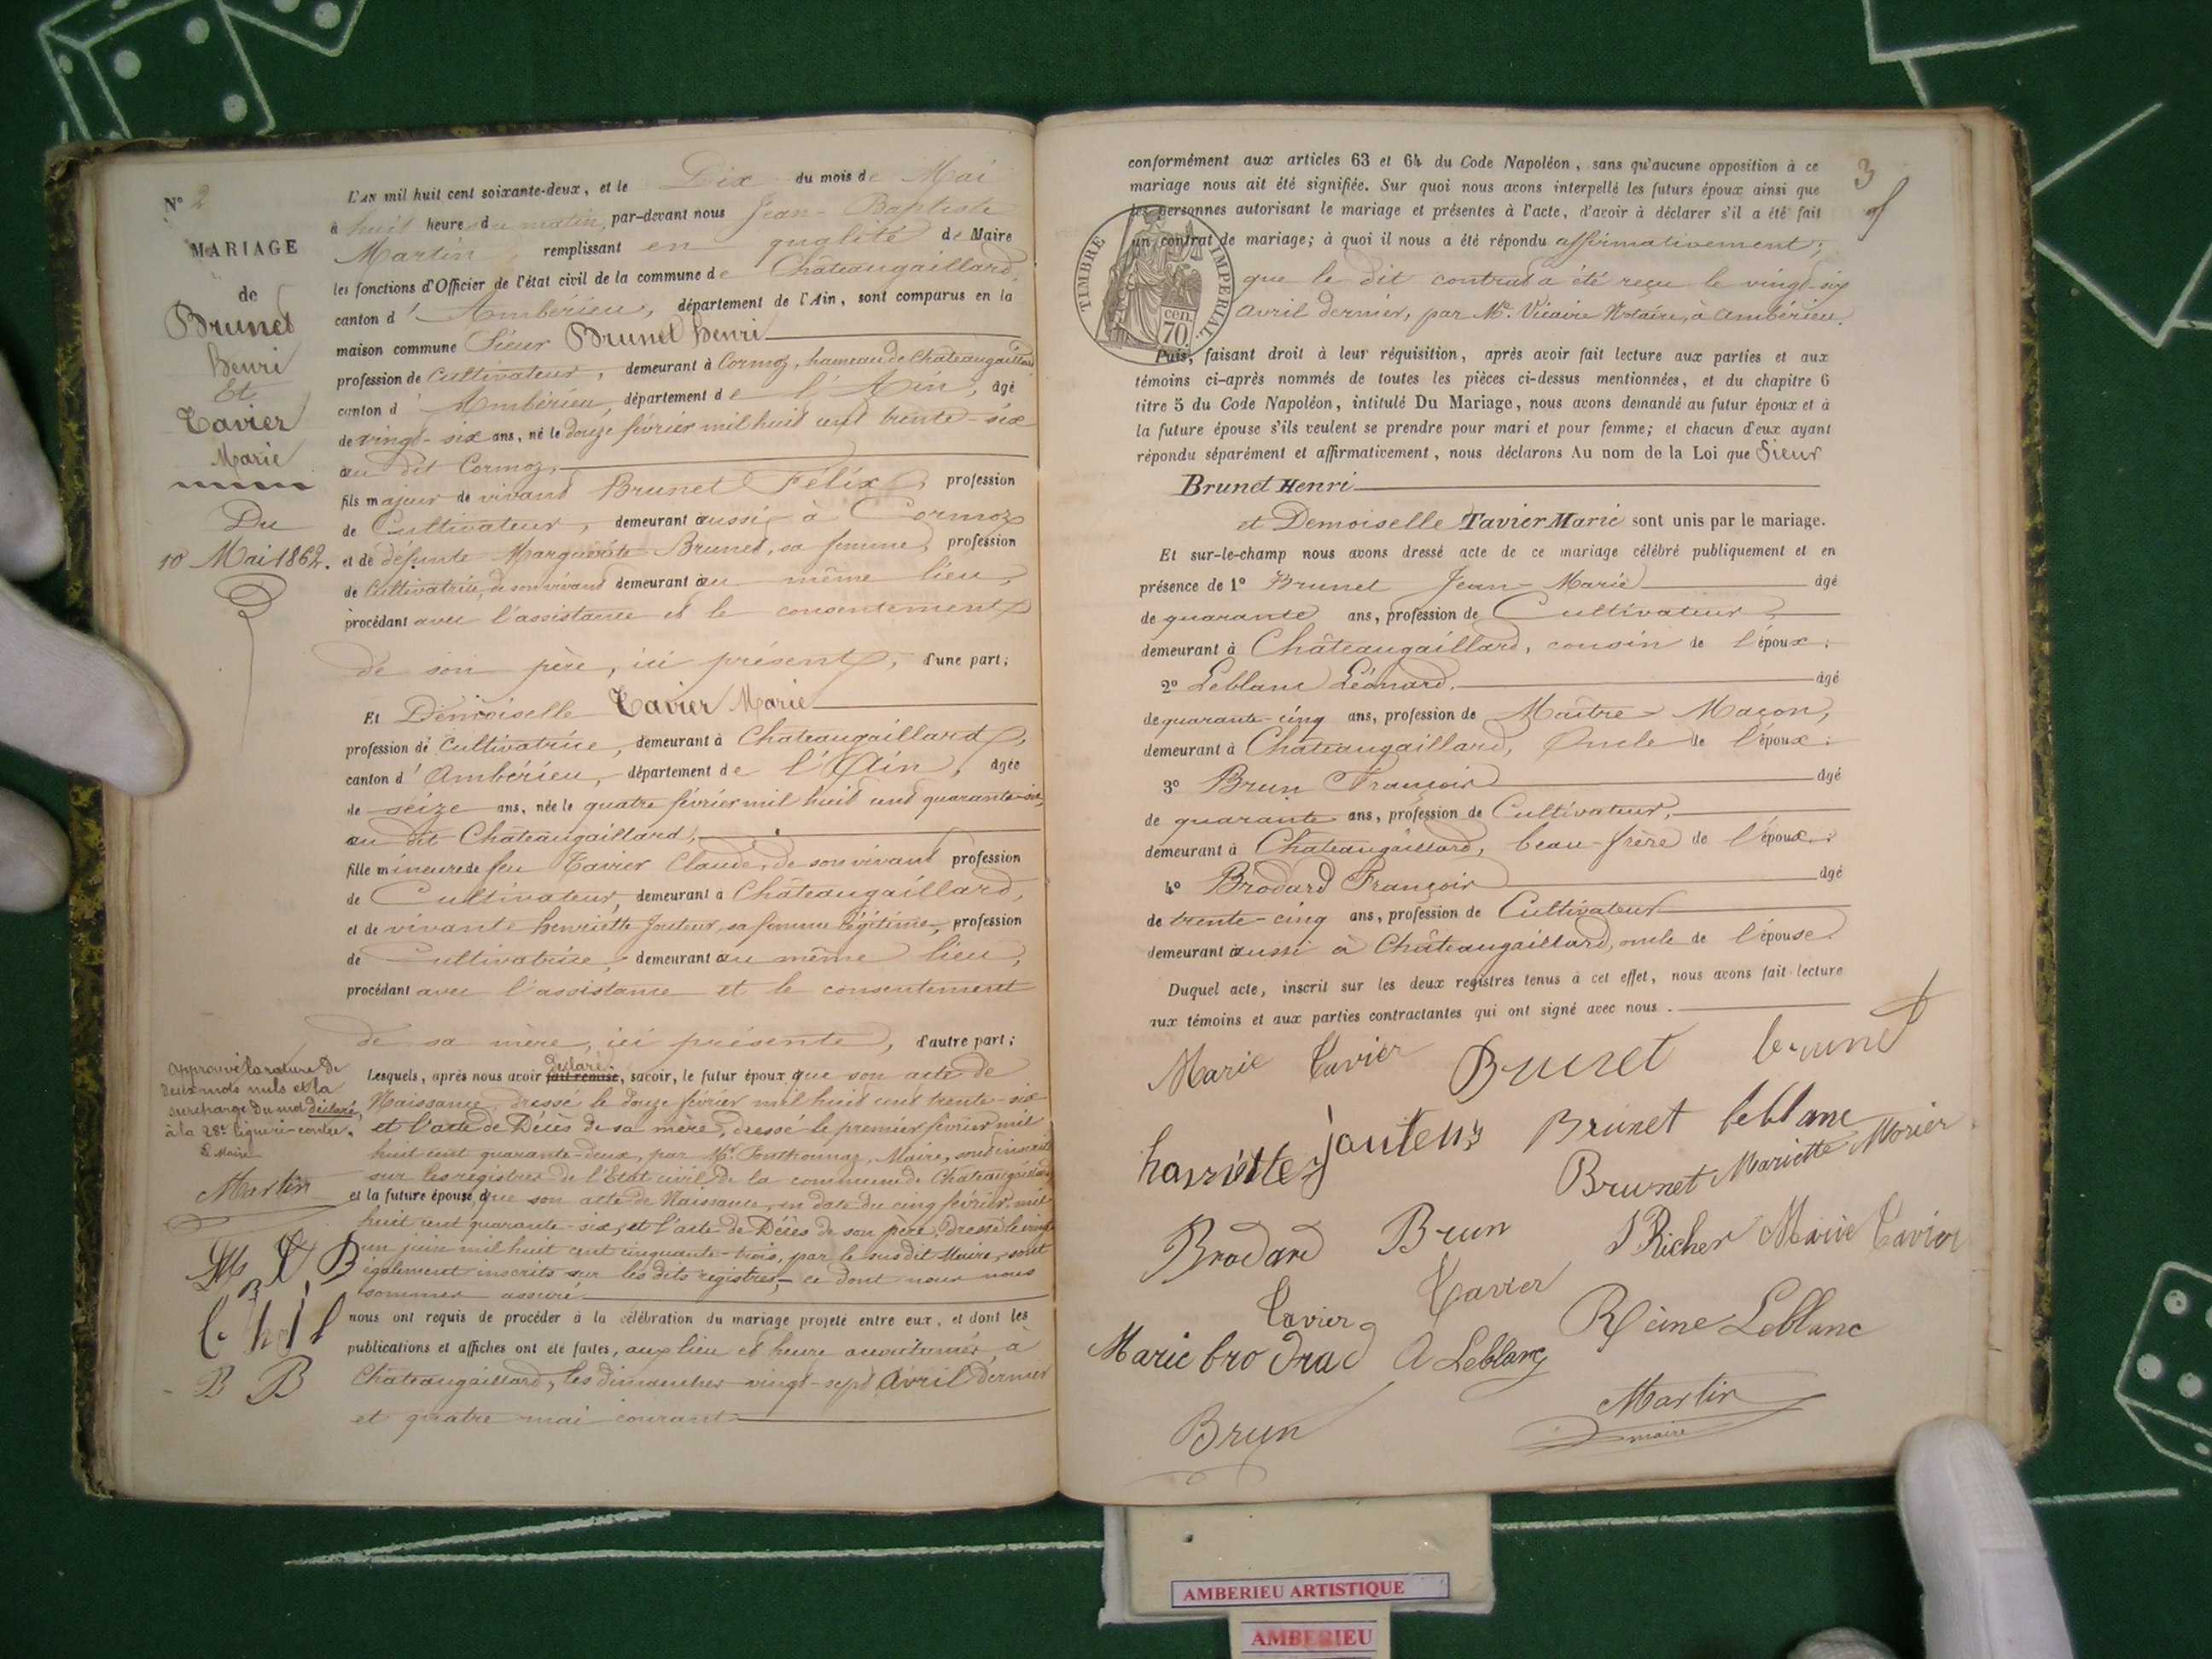 N° 2
MARIAGE
de
Brunet
henri
Et
Tavier
Marie
Du
10 Mai 1862.
L'AN mil huit cent soixante-deux, et le Dix du mois de Mai
à huit heures du matin, par-devant nous Jean-Baptiste
Martin, remplissant en qualité de Maire
les fonctions d'Officier de l'état civil de la commune de Châteaugaillard,
canton d'Ambérieu, département de l'Ain, sont comparus en la
maison commune Sieur Brunet henri
profession de Cultivateur, demeurant à Cormoz, hameau de Chateaugaillard
canton d'Ambérieu, département de l'Ain, âgé
de vingt-six ans, né le douze février mil huit cent trente-six
au dit Cormoz,
fils majeur de vivant Brunet Félix, profession
de Cultivateur, demeurant aussi à Cormoz
et de défunte Marguerite Brunet, sa femme, profession
de Cultivatrice, de son vivant demeurant au même lieu,
procédant avec l'assistance et le consentement
de son père, ici présent, d'une part;
Et Demoiselle Tavier Marie
profession de Cultivatrice, demeurant à Chateaugaillard,
canton d'Ambérieu, département de l'Ain, âgée
de seize ans, née le quatre février mil huit cent quarante-six,
au dit Châteaugaillard,
fille mineure de feu Tavier Claude, de son vivant profession
de Cultivateur, demeurant à Châteaugaillard,
et de vivante henriette Jouteur, sa femme légitime, profession
de Cultivatrice, demeurant au même lieu,
procédant avec l'assistance et le consentement
de sa mère, ici présente, d'autre part;
approuvé la rature de
deux mots nuls et la
surcharge du mot déclaré,
à la 28e ligne ci-contre.
Le Maire
Martin
déclaré
Lesquels, après nous avoir fait remise, savoir, le futur époux que son acte de
Naissance, dressé le douze février mil huit cent trente-six
et l'acte de Décès de sa mère, dressé le premier février mil
huit cent quarante-deux, par Mr. Maire, sont inscrits
sur les registres de l'Etat civil de la commune de Chateaugaillard
et la future épouse, que son acte de Naissance, en date du cinq février mil
huit cent quarante-six, et l'acte de Décès de son père, dressé le vingt
un juin mil huit cent cinquante-trois, par le susdit Maire, sont
également inscrits sur les dits registres, ce dont nous nous
sommes assuré.
M T B
B B
nous ont requis de procéder à la célébration du mariage projeté entre eux, et dont les
publications et affiches ont été faites, aux lieu et heure accoutumés, à
Châteaugaillard, les dimanches vingt-sept Avril dernier
et quatre mai courant
3
conformément aux articles 63 et 64 du Code Napoléon, sans qu'aucune opposition à ce
mariage nous ait été signifiée. Sur quoi nous avons interpellé les futurs époux ainsi que
les personnes autorisant le mariage et présentes à l'acte, d'avoir à déclarer s'il a été fait
un contrat de mariage; à quoi il nous a été répondu affirmativement;
que le dit contrat a été reçu le vingt-six
avril dernier, par Me. Vicaire Notaire, à Ambérieu.
TIMBRE IMPERIAL
cen.
70.
Puis, faisant droit à leur réquisition, après avoir fait lecture aux parties et aux
témoins ci-après nommés de toutes les pièces ci-dessus mentionnées, et du chapitre 6
titre 5 du Code Napoléon, intitulé Du Mariage, nous avons demandé au futur époux et à
la future épouse s'ils veulent se prendre pour mari et pour femme; et chacun d'eux ayant
répondu séparément et affirmativement, nous déclarons Au nom de la Loi que Sieur
Brunet Henri
et Demoiselle Tavier Marie sont unis par le mariage.
Et sur-le-champ nous avons dressé acte de ce mariage célébré publiquement et en
présence de 1° Brunet Jean-Marie âgé
de quarante ans, profession de Cultivateur,
demeurant à Châteaugaillard, cousin de l'époux:
2° Leblanc Léonard. âgé
de quarante-cinq ans, profession de Maître Maçon,
demeurant à Châteaugaillard, Oncle de l'époux:
3° Brun François âgé
de quarante ans, profession de Cultivateur,
demeurant à Châteaugaillard, beau-frère de l'époux:
4° Brodard François âgé
de trente-cinq ans, profession de Cultivateur
demeurant aussi à Châteaugaillard, oncle de l'épouse.
Duquel acte, inscrit sur les deux registres tenus à cet effet, nous avons fait lecture
aux témoins et aux parties contractantes qui ont signé avec nous.
Marie Tavier Brunet brunet
harriette jouteur Brunet leblanc
Brunet Mariette Morier
Brodard Brun J Richer Marie Tavier
Tavier Tavier
Reine Leblanc
Marie brodrad A Leblanc
Brun
Martin
maire
AMBERIEU ARTISTIQUE
AMBERIEU